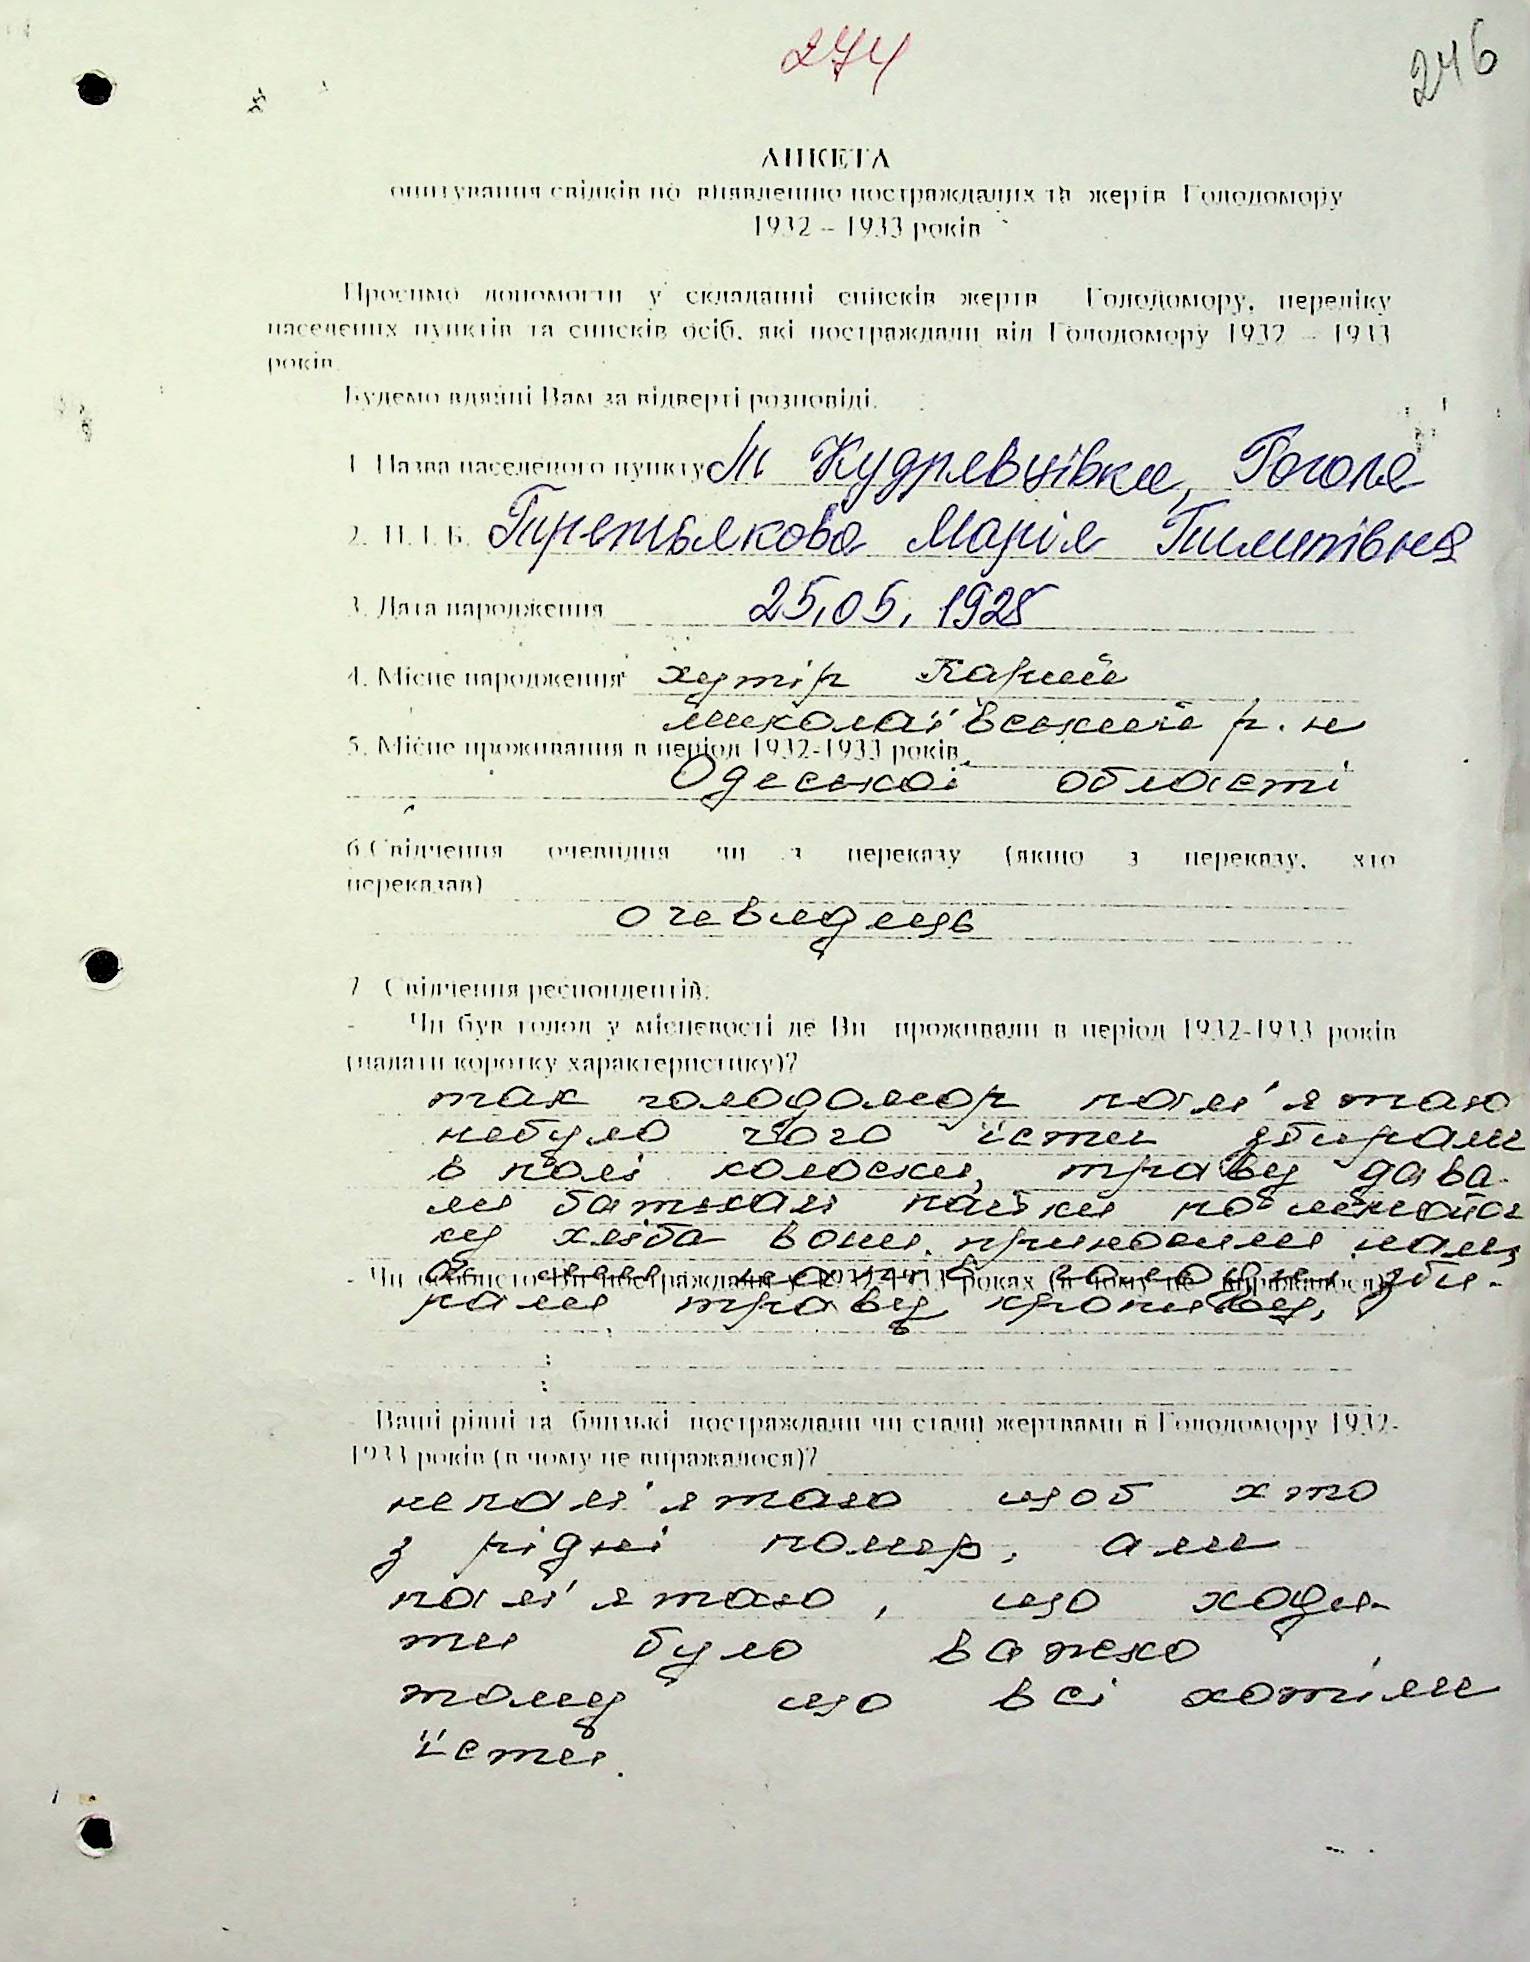 274
246
АНКЕТА
опитування свідків по виявленню постраждалих та жертв Голодомору
1932 – 1933 років
Просимо допомогти у складанні списків жертв Голодомору, переліку
населених пунктів та списків осіб, які постраждали від Голодомору 1932 – 1933
років.
Будемо вдячні Вам за відверті розповіді.
1. Назва населеного пункту м Кудрявцівка, Гоголя
2. П.І.Б. Третьякова Марія Пилипівна
3. Дата народження 25.05.1928
4. Місце народження хутір
миколаївський р.н
5. Місце проживання в період 1932-1933 років
Одеської області
6.Свідчення очевидця чи з переказу (якщо з переказу, хто
переказав)
очевидець
7. Свідчення респондентів:
- Чи був голод у місцевості де Ви проживали в період 1932-1933 років
(надати коротку характеристику)?
так голодомор пам'ятаю
небуло чого їсти збирали
в полі колоски, траву дава-
ли батькам пайки по
ку хліба вони приносили нам,
- Чи особисто Ви постраждали у 1932-1933 роках (в чому це виражалося)?
а ми зби-
рали траву кропиву,
- Ваші рідні та близькі постраждали чи стали жертвами в Голодомору 1932-
1933 років (в чому це виражалося)?
непам'ятаю щоб хто
з рідні помер, али
пам'ятаю, що ходи-
ти було важко
тому що всі хотіли
їсти.